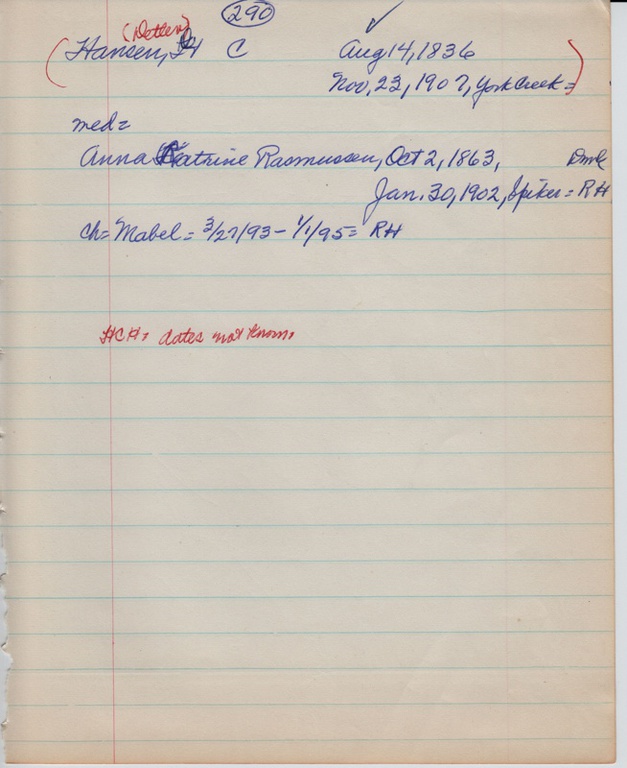 290
(Detlev)
(Hansen, H C Aug 14, 1836
Nov, 23, 1907, York Creek =)
med=
Anna Katrine Rasmussen, Oct 2, 1863, Dmk
Jan. 30, 1902, Spiker = RH
Ch= Mabel = 3/27/93 - 1/1/95 = RH
HCH, dates not known,